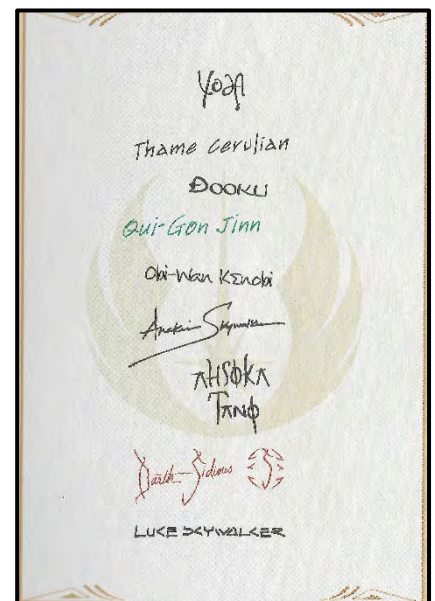 Yoda
Thame Cerulian
DOOKU
Qui-Gon Jinn
Obi-Wan Kenobi
Anakin Skywalker
AHSOKA
TANO
Darth Sidious
LUKE SKYWALKER